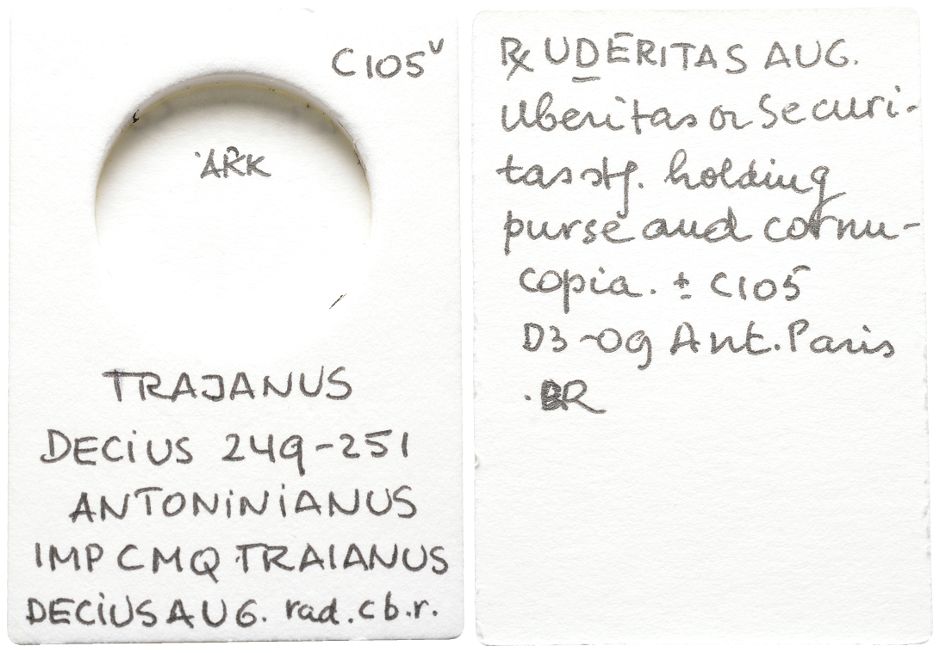 C105ᵛ
ARK
TRAJANUS
DECIUS 249-251
ANTONINIANUS
IMP CMQ TRAIANUS
DECIUS AUG. rad. c b. r.
℞ UDERITAS AUG.
Uberitas or Securi-
tas stg. holding
purse and cornu-
copia. ± C105
D3-09 Ant. Paris